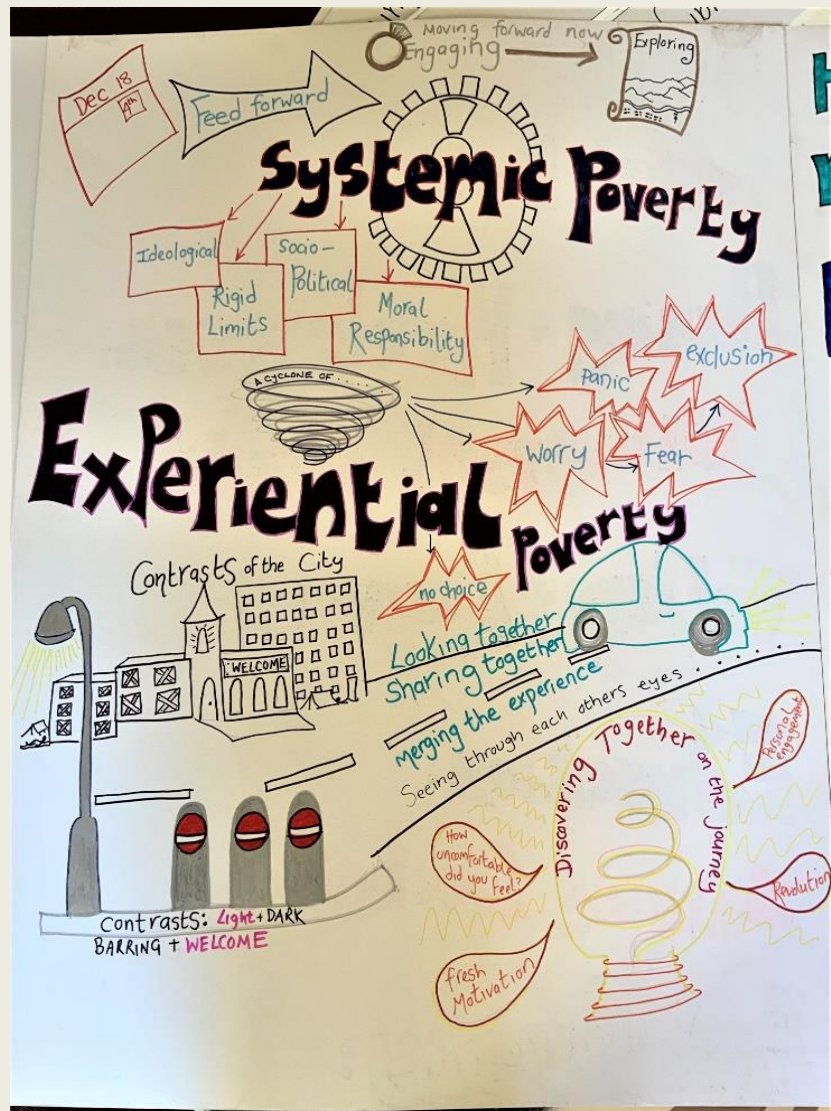 Moving forward now
Engaging
Exploring
Dec 18
4th
Feed forward
Systemic Poverty
Ideological
Socio-
Political
Rigid
Limits
Moral
Responsibility
A CYCLONE OF......
Panic
exclusion
Worry
Fear
Experiential
Poverty
no choice
Contrasts of the City
WELCOME
Looking together
Sharing together
Merging the experience
Seeing through each others eyes
Discovering Together on the journey
Personal
engagement
How
uncomfortable
did you feel?
Revolution
fresh
Motivation
Contrasts: Light + DARK
BARRING + WELCOME